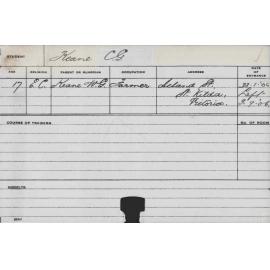 STUDENT Keane CG
AGE RELIGION PARENT OR GUARDIAN OCCUPATION ADDRESS DATE OF ENTRANCE
17 E.C. Keane W.G. Farmer Acland St.
St. Kilda, Left
Victoria.
COURSE OF TRAINING NO. OF ROOM
RESULTS